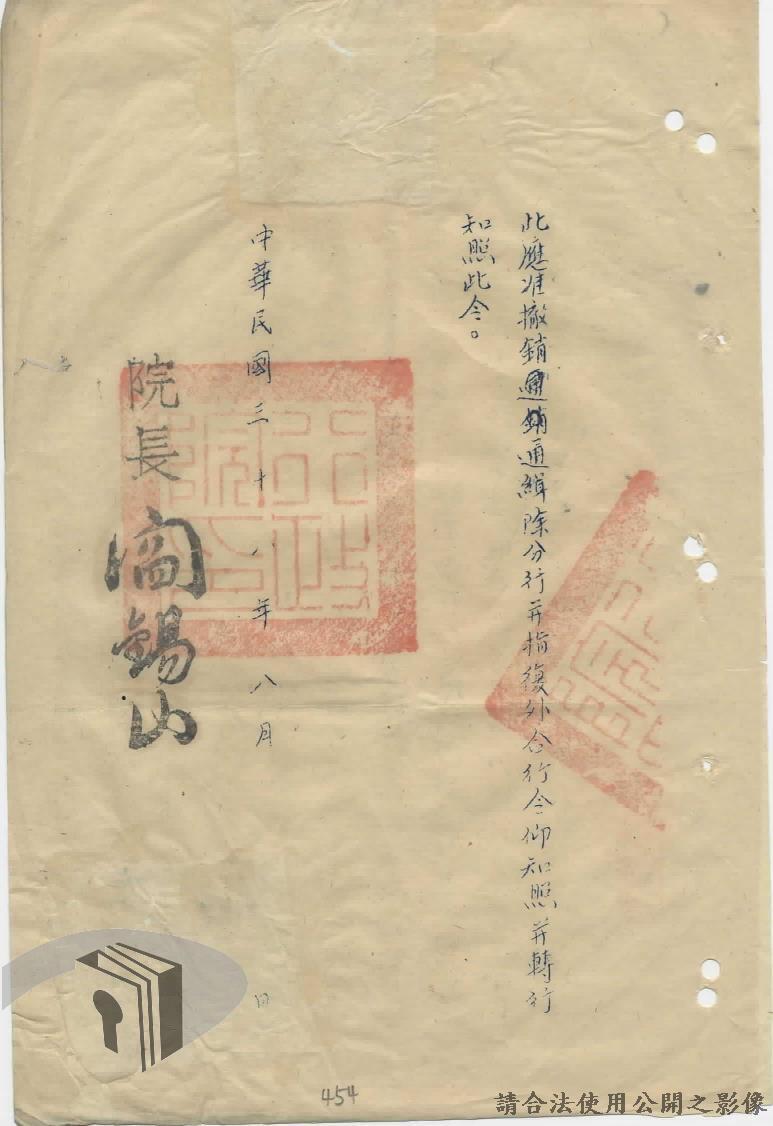 此應准撤銷通緝除分行并指復外合行令仰知照并轉行
知照此令。
中華民國三十八年八月 日
院長 閻錫山
454
請合法使用公開之影像